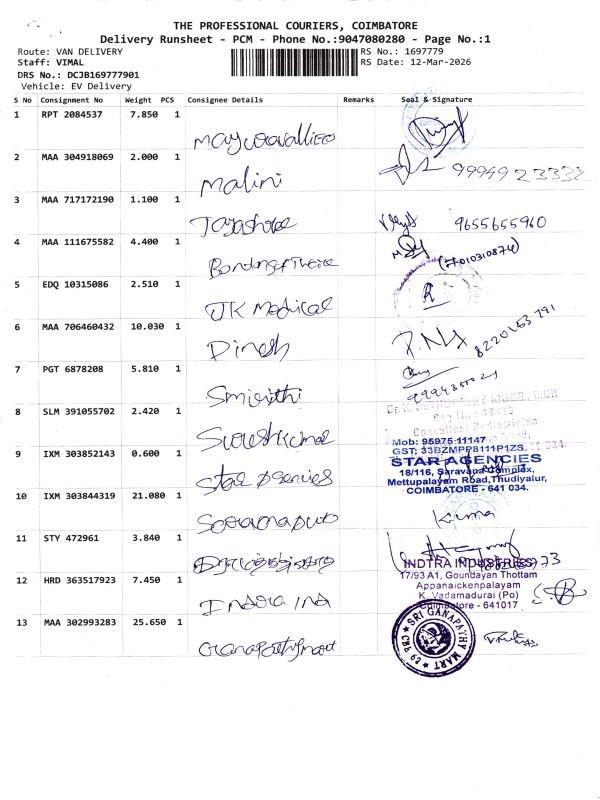 THE PROFESSIONAL COURIERS, COIMBATORE
Delivery Runsheet - PCM - Phone No.:9047080280 - Page No.:1
Route: VAN DELIVERY
RS No.: 1697779
Staff: VIMAL
RS Date: 12-Mar-2026
DRS No.: DCJB169777901
Vehicle: EV Delivery
S No Consignment No Weight PCS Consignee Details Remarks Seal & Signature
1 RPT 2084537 7.850 1
2 MAA 304918069 2.000 1
Malini
3 MAA 717172190 1.100 1
9655655960
4 MAA 111675582 4.400 1
(7010310874)
5 EDQ 10315086 2.510 1
JK Medical
6 MAA 706460432 10.030 1
Dinesh
7 PGT 6878208 5.810 1
8 SLM 391055702 2.420 1
Sureshkumar
9 IXM 303852143 0.600 1
Star Agencies
Mob: 95975 11147
GST: 33BZMPP8111P1ZS
STAR AGENCIES
18/116, Saravana Complex,
Mettupalayam Road, Thudiyalur,
COIMBATORE - 641 034.
10 IXM 303844319 21.080 1
Kuma
11 STY 472961 3.840 1
12 HRD 363517923 7.450 1
Indra Ind
INDTRA INDUSTRIES
17/93 A1, Goundayan Thottam
Appanaickenpalayam
K. Vadamadurai (Po)
Coimbatore - 641017
13 MAA 302993283 25.650 1
Ganapathymart
SRI GANAPATHY MART
CBE 29